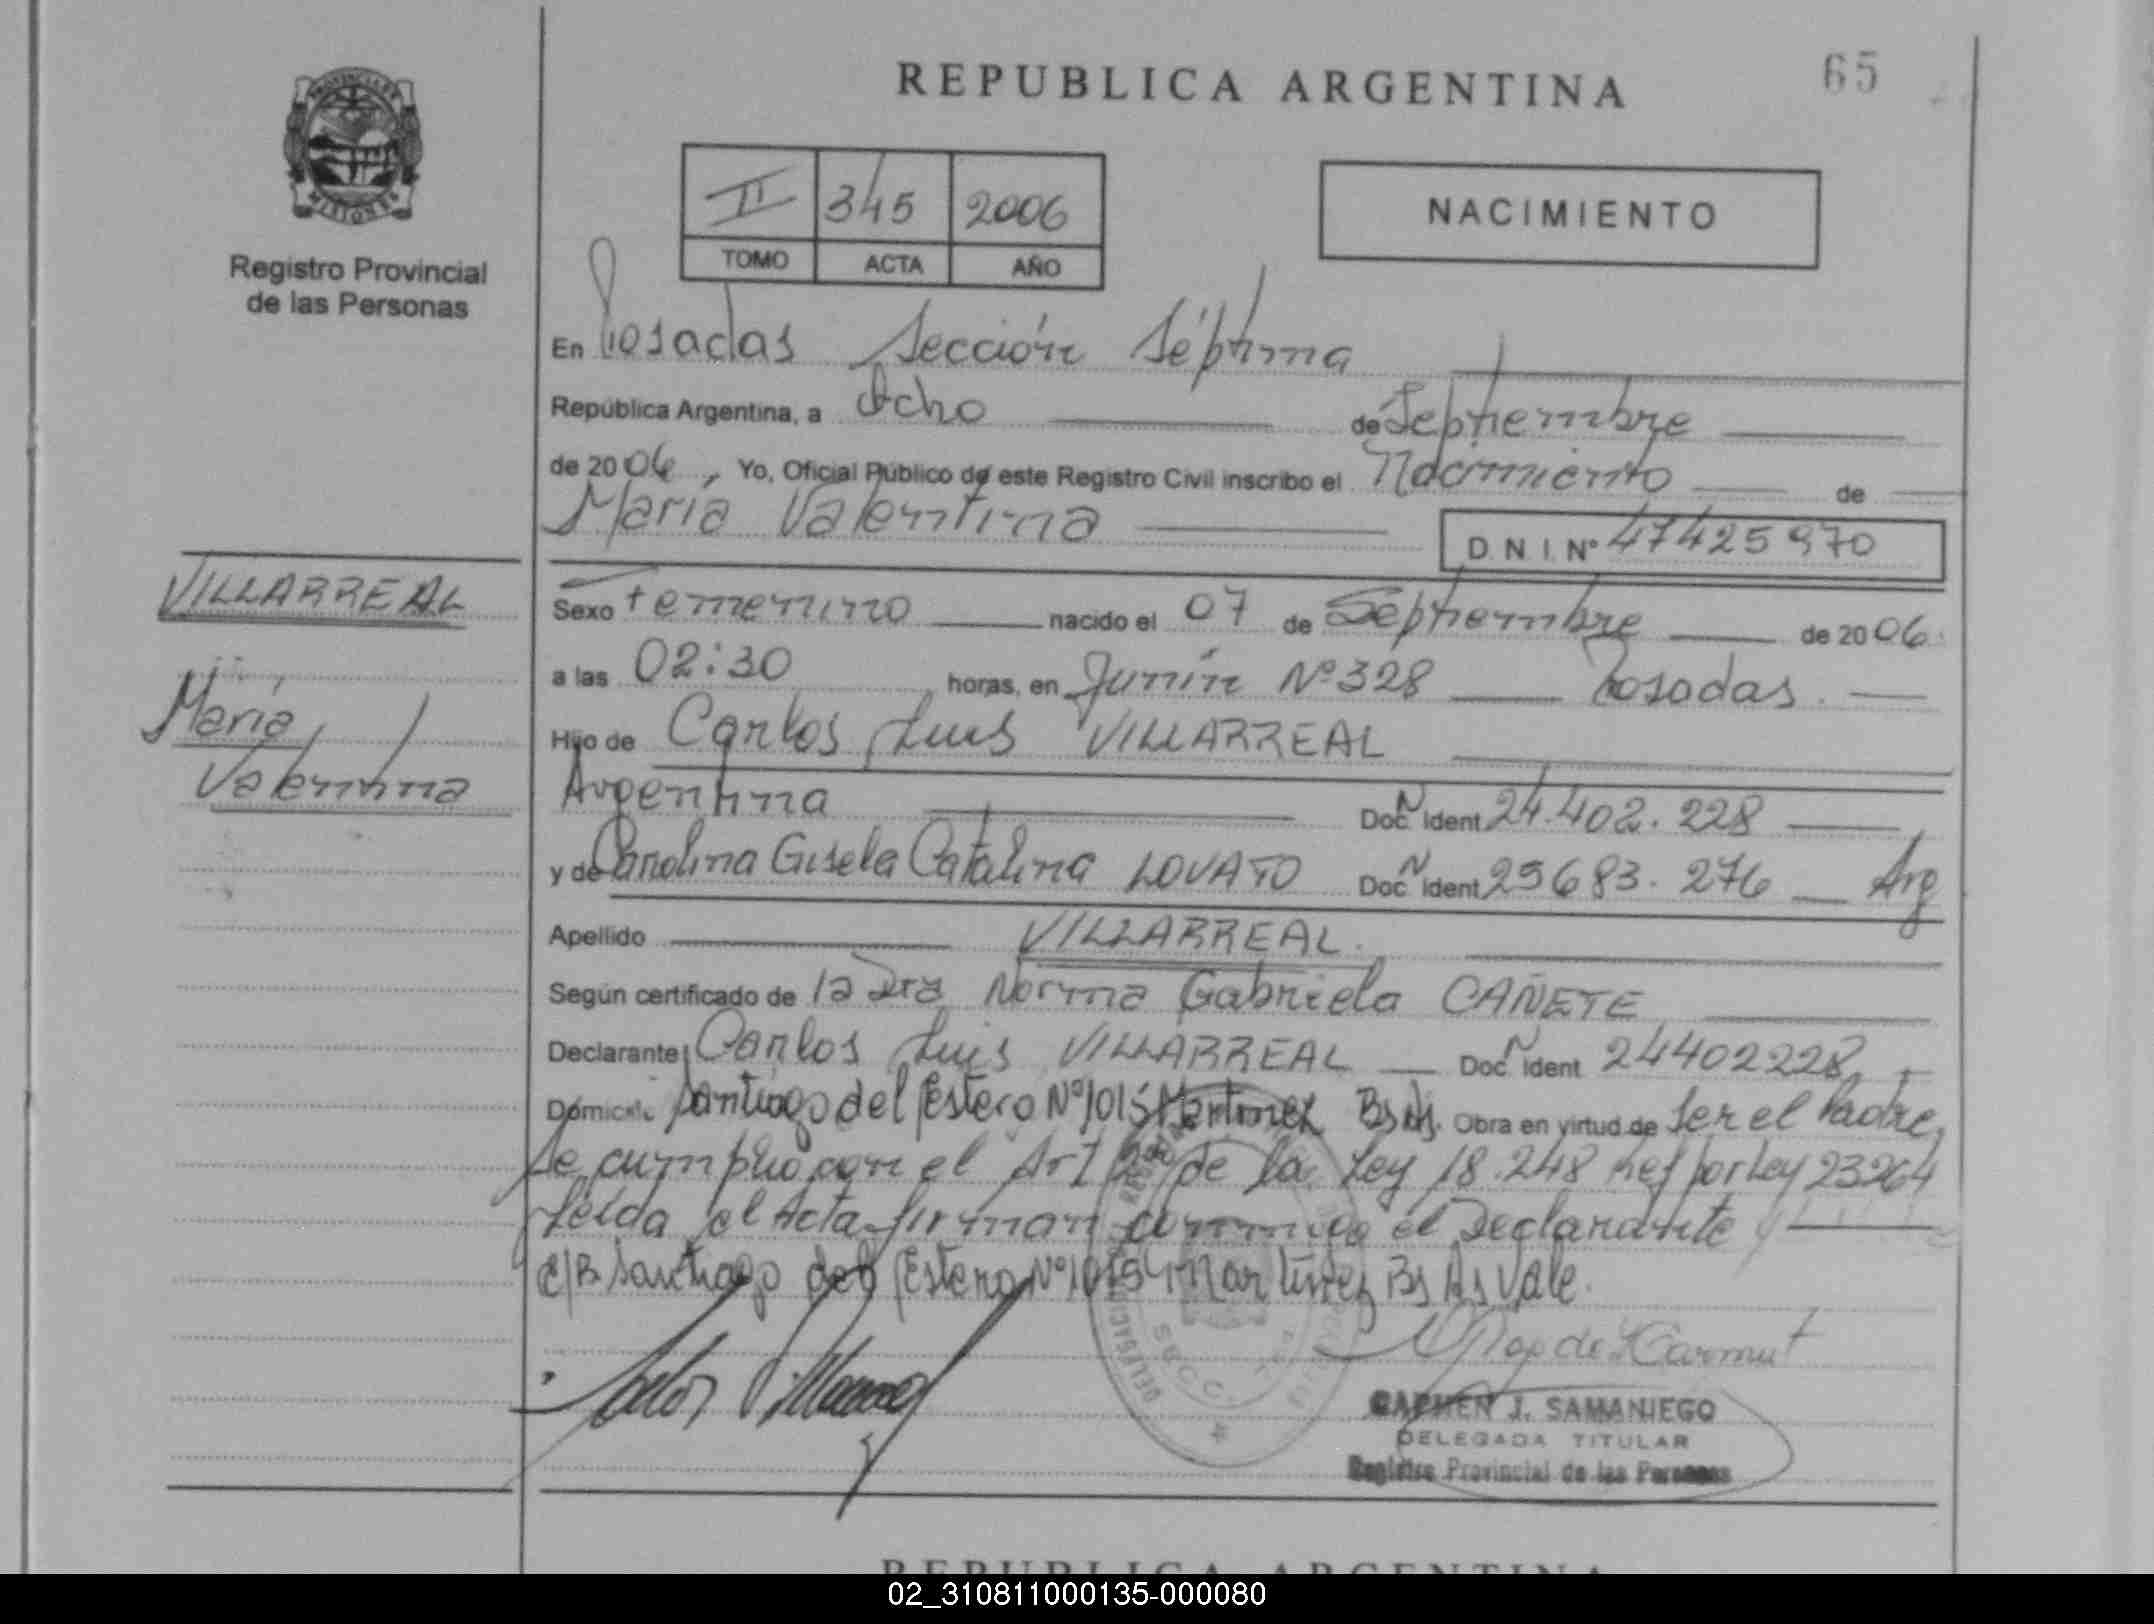 REPUBLICA ARGENTINA
65
PROVINCIA DE MISIONES
Registro Provincial
de las Personas
II 345 2006
TOMO ACTA AÑO
NACIMIENTO
En Posadas Sección Séptima
República Argentina, a Ocho de Septiembre
de 2006, Yo, Oficial Público de este Registro Civil inscribo el Nacimiento de
María Valentina
D.N.I. Nº 47425970
VILLARREAL
María
Valentina
Sexo Femenino nacido el 07 de Septiembre de 2006
a las 02:30 horas, en Junín Nº 328 Posadas.
Hijo de Carlos Luis VILLARREAL
Argentina Doc. N Ident 24.402.228
y de Carolina Gisela Catalina LOVATO Doc. N Ident 25683.276 Arg
Apellido VILLARREAL.
Según certificado de la Dra Norma Gabriela CAÑETE
Declarante Carlos Luis VILLARREAL Doc. N Ident 24402228
Domicilio Santiago del Estero Nº 1015 Martinez Bs As. Obra en virtud de ser el Padre,
Se cumplió con el Art 2º de la Ley 18.248 Ref por Ley 23264
Leída el Acta firman conmigo el Declarante
E/B Santiago del Estero Nº 1015 Martínez Bs As Vale.
CARMEN J. SAMANIEGO
DELEGADA TITULAR
Registro Provincial de las Personas
REPUBLICA ARGENTINA
02_310811000135-000080